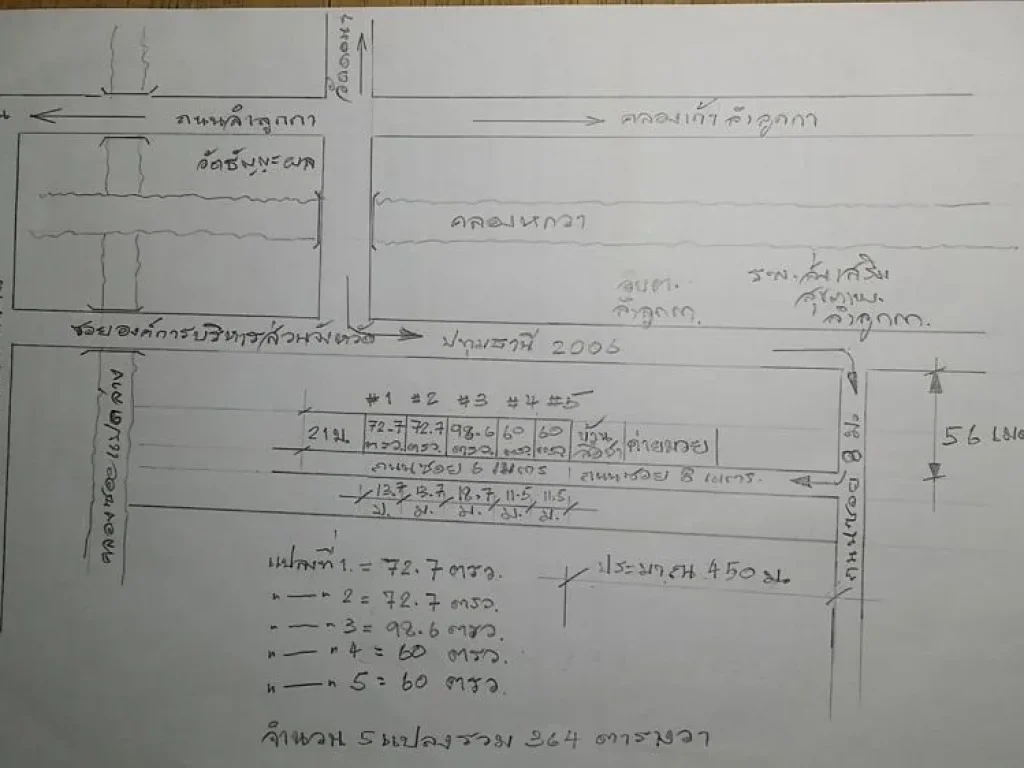 วัดดอนใหญ่
น
ถนนลำลูกกา
คลองเก้า ลำลูกกา
วัดธัญญะผล
คลองหกวา
อบต.
ลำลูกกา.
ร.พ.ส่งเสริม
สุขภาพ.
ลำลูกกา.
ซอยองค์การบริหารส่วนจังหวัด
ปทุมธานี 2006
#1 #2 #3 #4 #5
56 เมตร
21 ม.
72.7 ตรว.
72.7 ตรว.
98.6 ตรว.
60 ตรว.
60 ตรว.
บ้าน
ค่ายมวย
ถนนซอย 6 เมตร
ถนนซอย 8 เมตร.
13.7 ม.
13.7 ม.
18.7 ม.
11.5 ม.
11.5 ม.
แปลงที่ 1. = 72.7 ตรว.
" — " 2 = 72.7 ตรว.
" — " 3 = 98.6 ตรว.
" — " 4 = 60 ตรว.
" — " 5 = 60 ตรว.
ประมาณ 450 ม.
จำนวน 5 แปลงรวม 364 ตารางวา